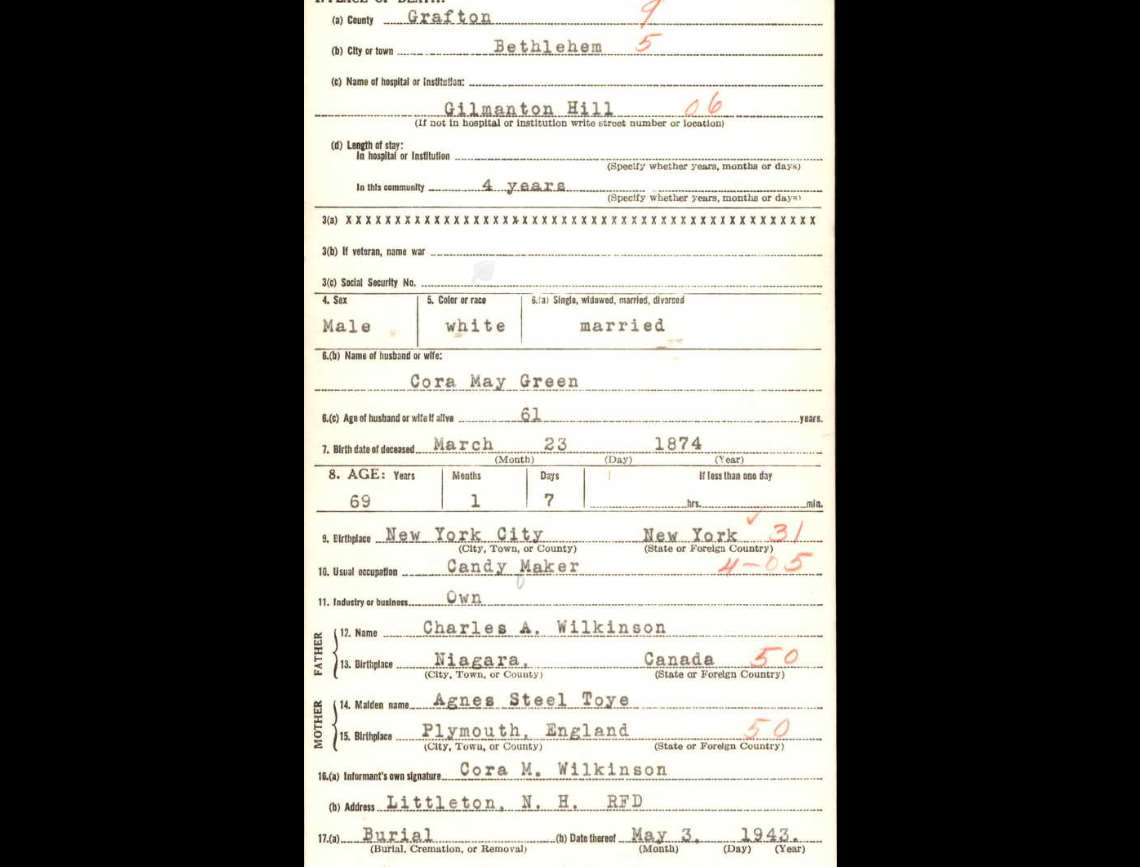 1. PLACE OF DEATH:
(a) County Grafton 9
(b) City or town Bethlehem 5
(c) Name of hospital or institution:
Gilmanton Hill 06
(If not in hospital or institution write street number or location)
(d) Length of stay:
In hospital or institution
(Specify whether years, months or days)
In this community 4 years
(Specify whether years, months or days)
3(a) X X X X X X X X X X X X X X X X X X X X X X X X X X X X X X X X X X X X X X X X X X X X X X X X
3(b) If veteran, name war
3(c) Social Security No.
4. Sex 5. Color or race 6.(a) Single, widowed, married, divorced
Male white married
6.(b) Name of husband or wife:
Cora May Green
6.(c) Age of husband or wife if alive 61 years.
7. Birth date of deceased March 23 1874
(Month) (Day) (Year)
8. AGE: Years Months Days If less than one day
69 1 7 hrs. min.
9. Birthplace New York City New York 31
(City, Town, or County) (State or Foreign Country)
10. Usual occupation Candy Maker 4-05
11. Industry or business Own
FATHER
12. Name Charles A. Wilkinson
13. Birthplace Niagara, Canada 50
(City, Town, or County) (State or Foreign Country)
MOTHER
14. Maiden name Agnes Steel Toye
15. Birthplace Plymouth, England 50
(City, Town, or County) (State or Foreign Country)
16.(a) Informant's own signature Cora M. Wilkinson
(b) Address Littleton, N. H. RFD
17.(a) Burial (b) Date thereof May 3, 1943.
(Burial, Cremation, or Removal) (Month) (Day) (Year)